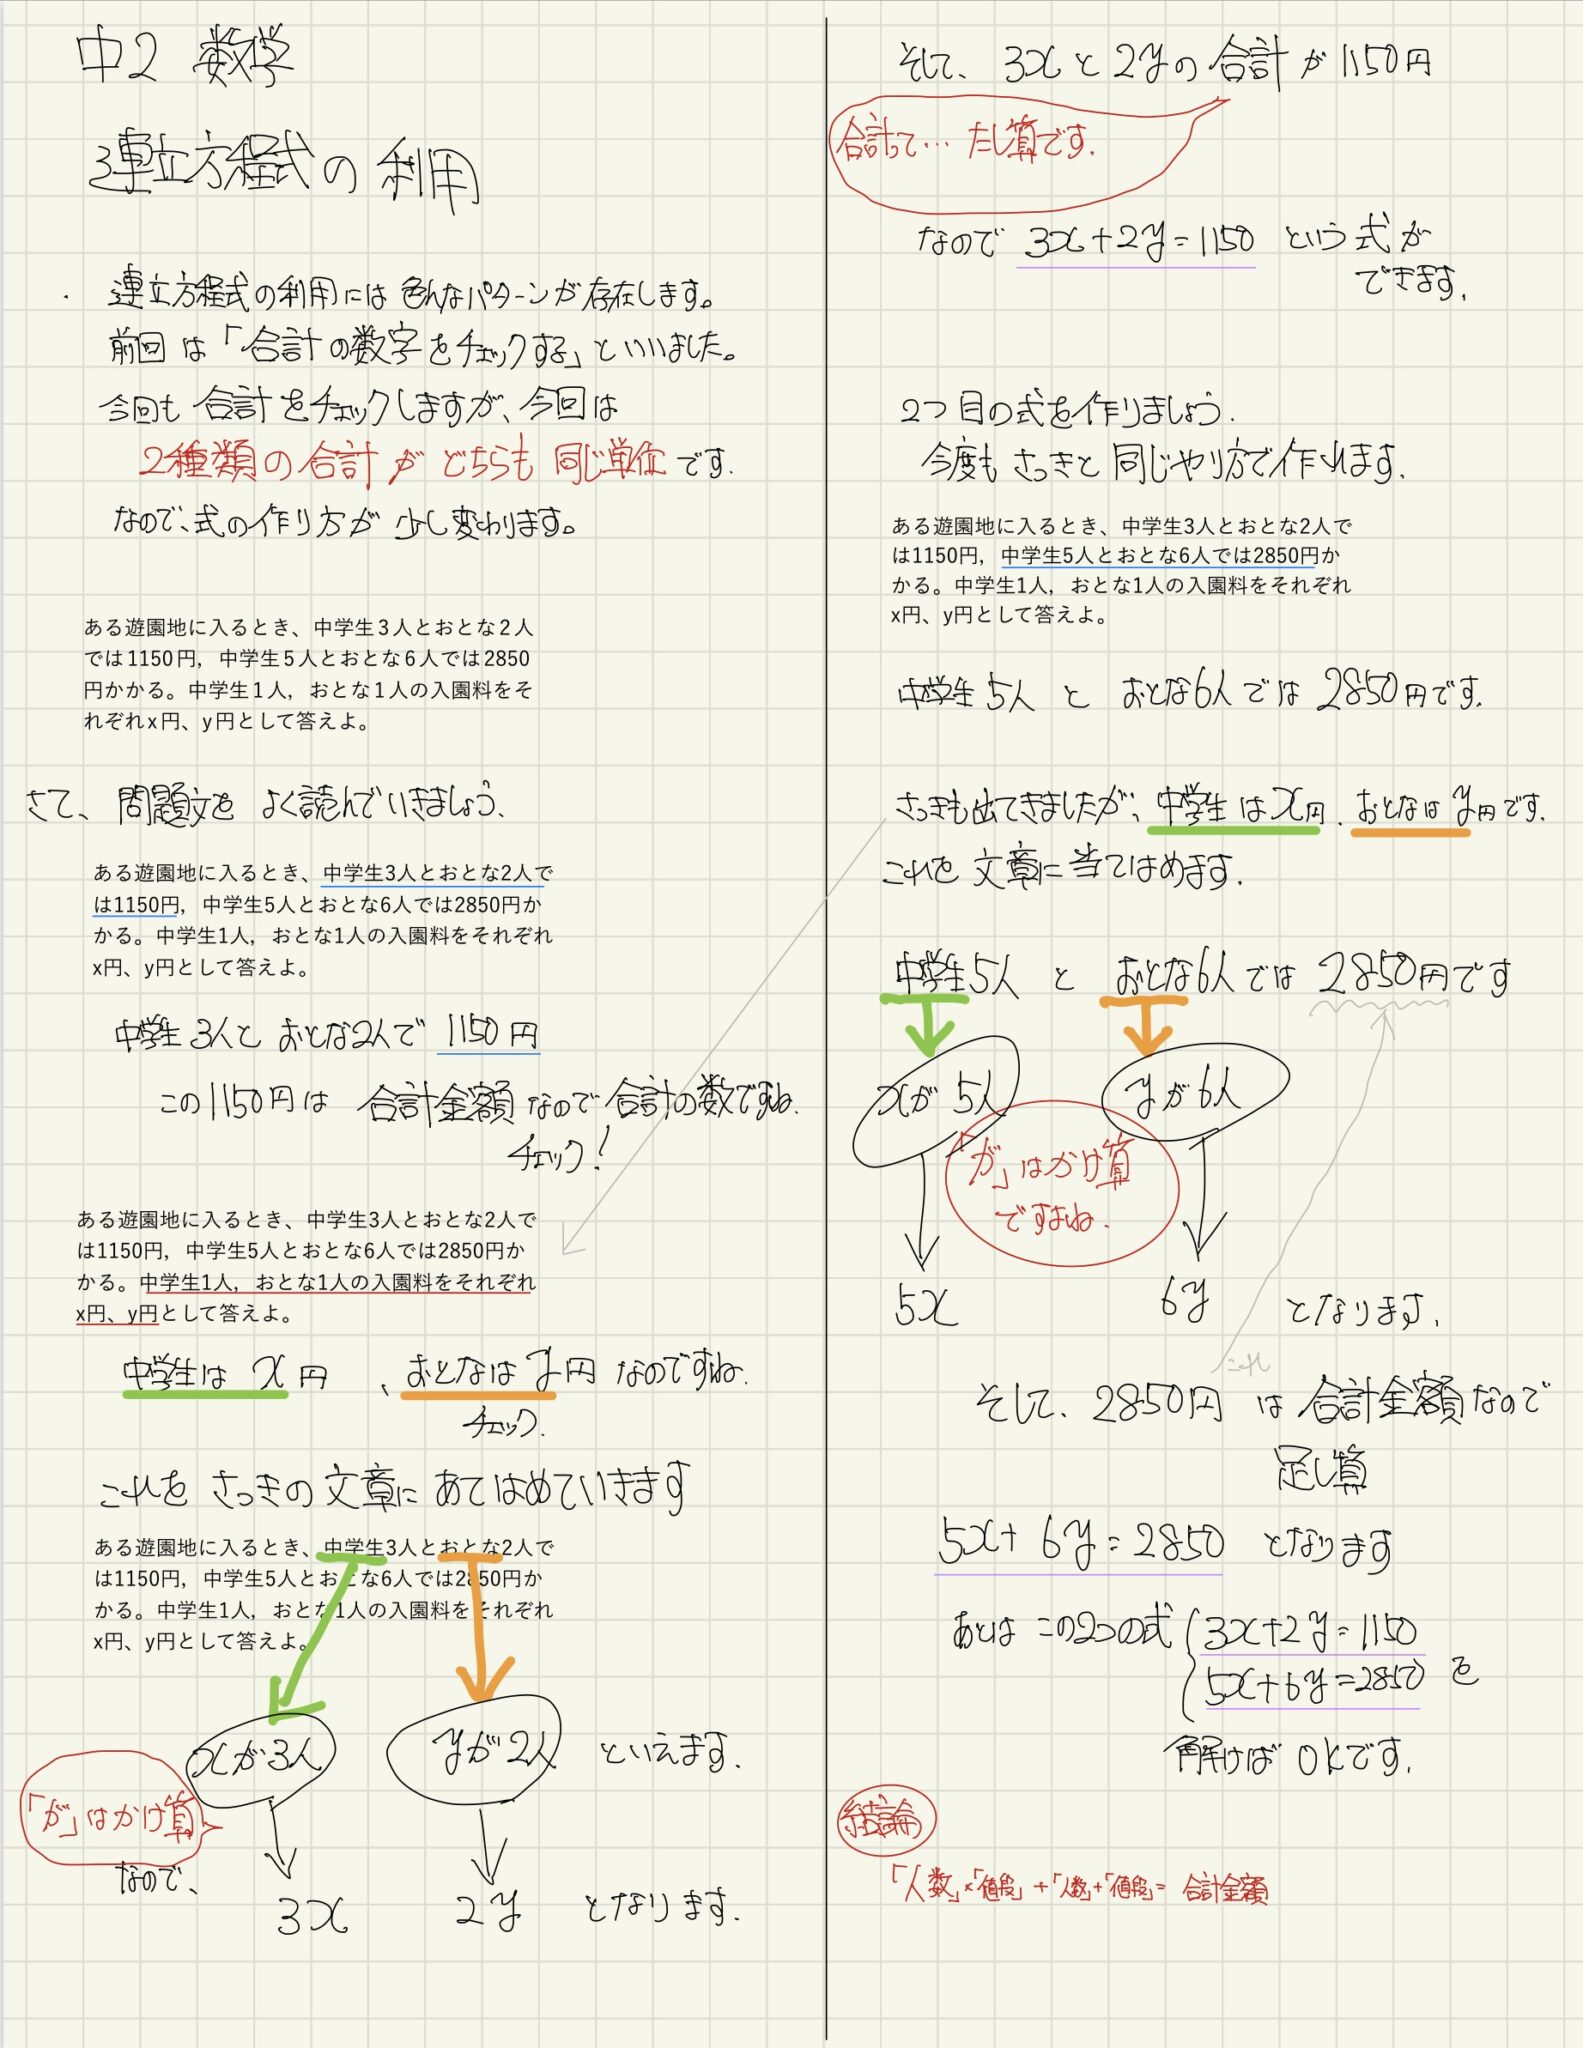 中2 数学
連立方程式の利用
・ 連立方程式の利用には色んなパターンが存在します。
前回は「合計の数字をチェックする」といいました。
今回も合計をチェックしますが、今回は
2種類の合計がどちらも同じ単位です.
なので、式の作り方が少し変わります。
ある遊園地に入るとき、中学生3人とおとな2人
では1150円，中学生5人とおとな6人では2850
円かかる。中学生1人，おとな1人の入園料をそ
れぞれx円、y円として答えよ。
さて、問題文をよく読んでいきましょう.
ある遊園地に入るとき、中学生3人とおとな2人で
は1150円，中学生5人とおとな6人では2850円か
かる。中学生1人，おとな1人の入園料をそれぞれ
x円、y円として答えよ。
中学生3人とおとな2人で1150円
この1150円は合計金額なので合計の数ですね.
チェック!
ある遊園地に入るとき、中学生3人とおとな2人で
は1150円，中学生5人とおとな6人では2850円か
かる。中学生1人，おとな1人の入園料をそれぞれ
x円、y円として答えよ。
中学生はx円、おとなはy円なのですね.
チェック.
これをさっきの文章にあてはめていきます
ある遊園地に入るとき、中学生3人とおとな2人で
は1150円，中学生5人とおとな6人では2850円か
かる。中学生1人，おとな1人の入園料をそれぞれ
x円、y円として答えよ。
xが3人 yが2人 といえます.
「が」はかけ算
なので、
3x 2y となります.
そして、3xと2yの合計が1150円
合計って… たし算です.
なので 3x+2y=1150 という式が
できます.
2つ目の式を作りましょう.
今度もさっきと同じやり方で作れます.
ある遊園地に入るとき、中学生3人とおとな2人で
は1150円，中学生5人とおとな6人では2850円か
かる。中学生1人，おとな1人の入園料をそれぞれ
x円、y円として答えよ。
中学生5人とおとな6人では2850円です.
さっきも出てきましたが、中学生はx円、おとなはy円です.
これを文章に当てはめます.
中学生5人とおとな6人では2850円です
xが5人 yが6人
「が」はかけ算
ですよね.
5x 6y となります.
これ
そして、2850円は合計金額なので
足し算
5x+6y=2850 となります
あとはこの2つの式 3x+2y=1150
5x+6y=2850 を
解けばOKです.
結論
「人数」×「値段」+「人数」+「値段」= 合計金額